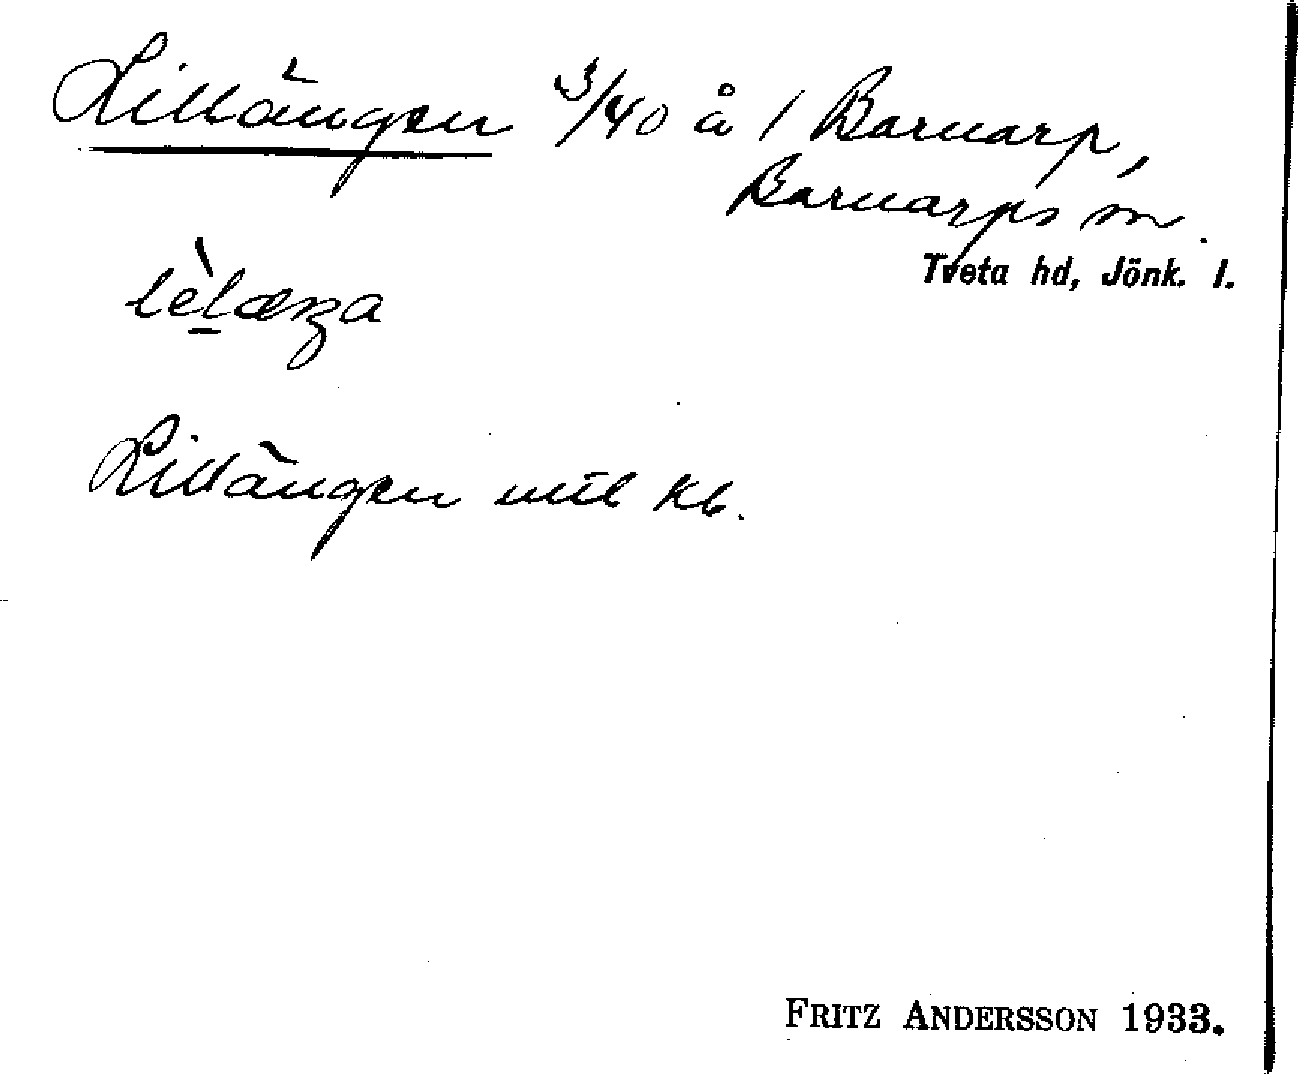 Lillängen 3/40 å 1 Barnarp,
Barnarps sn.
Tveta hd, Jönk. l.
Lillängen mtl kb.
FRITZ ANDERSSON 1933.